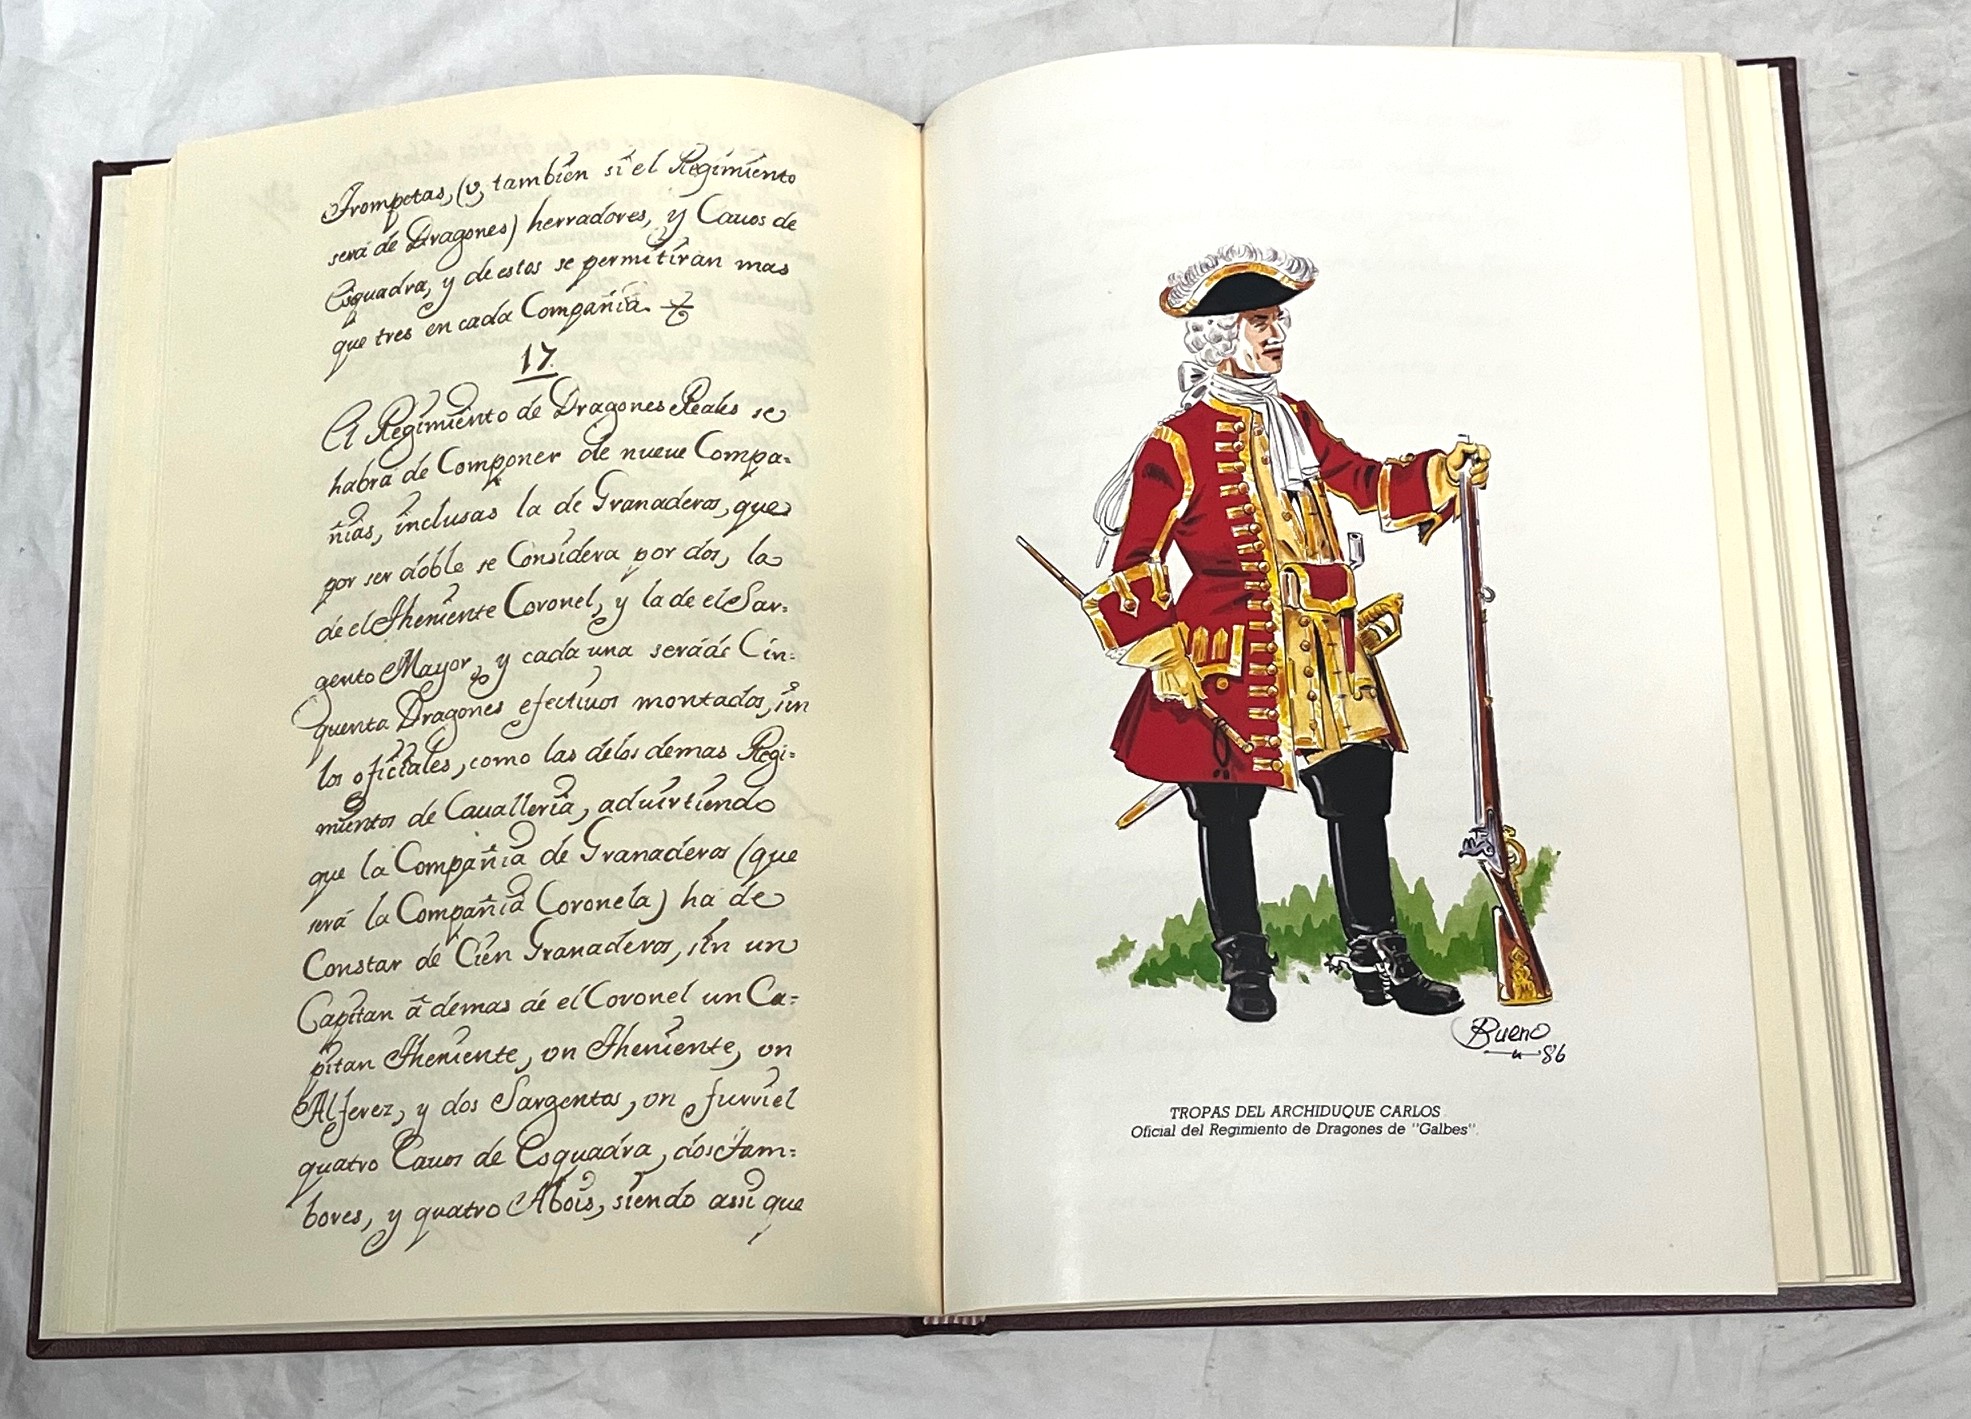 Trompetas, (v, tambien si el Regimiento
será de Dragones) herradores, y Cauos de
Esquadra, y de estos se permitiran mas
que tres en cada Compañia.
17.
El Regimiento de Dragones Reales se
habrá de Componer de nueue Compa=
ñias, inclusas la de Granaderos, que
por ser doble se Considera por dos, la
de el Theniente Coronel, y la de el Sar=
gento Mayor, y cada una será de Cin=
quenta Dragones efectiuos montados, sin
los oficiales, como las delos demas Regi=
mientos de Caualleria, aduirtiendo
que la Compañia de Granaderos (que
será la Compañia Coronela) ha de
Constar de Cien Granaderos, sin un
Capitan ademas de el Coronel un Ca=
pitan Theniente, vn Theniente, vn
Alferez, y dos Sargentos, vn furriel
quatro Cauos de Esquadra, dos Tam=
bores, y quatro Abois, siendo assi que
Bueno
86
TROPAS DEL ARCHIDUQUE CARLOS
Oficial del Regimiento de Dragones de "Galbes".